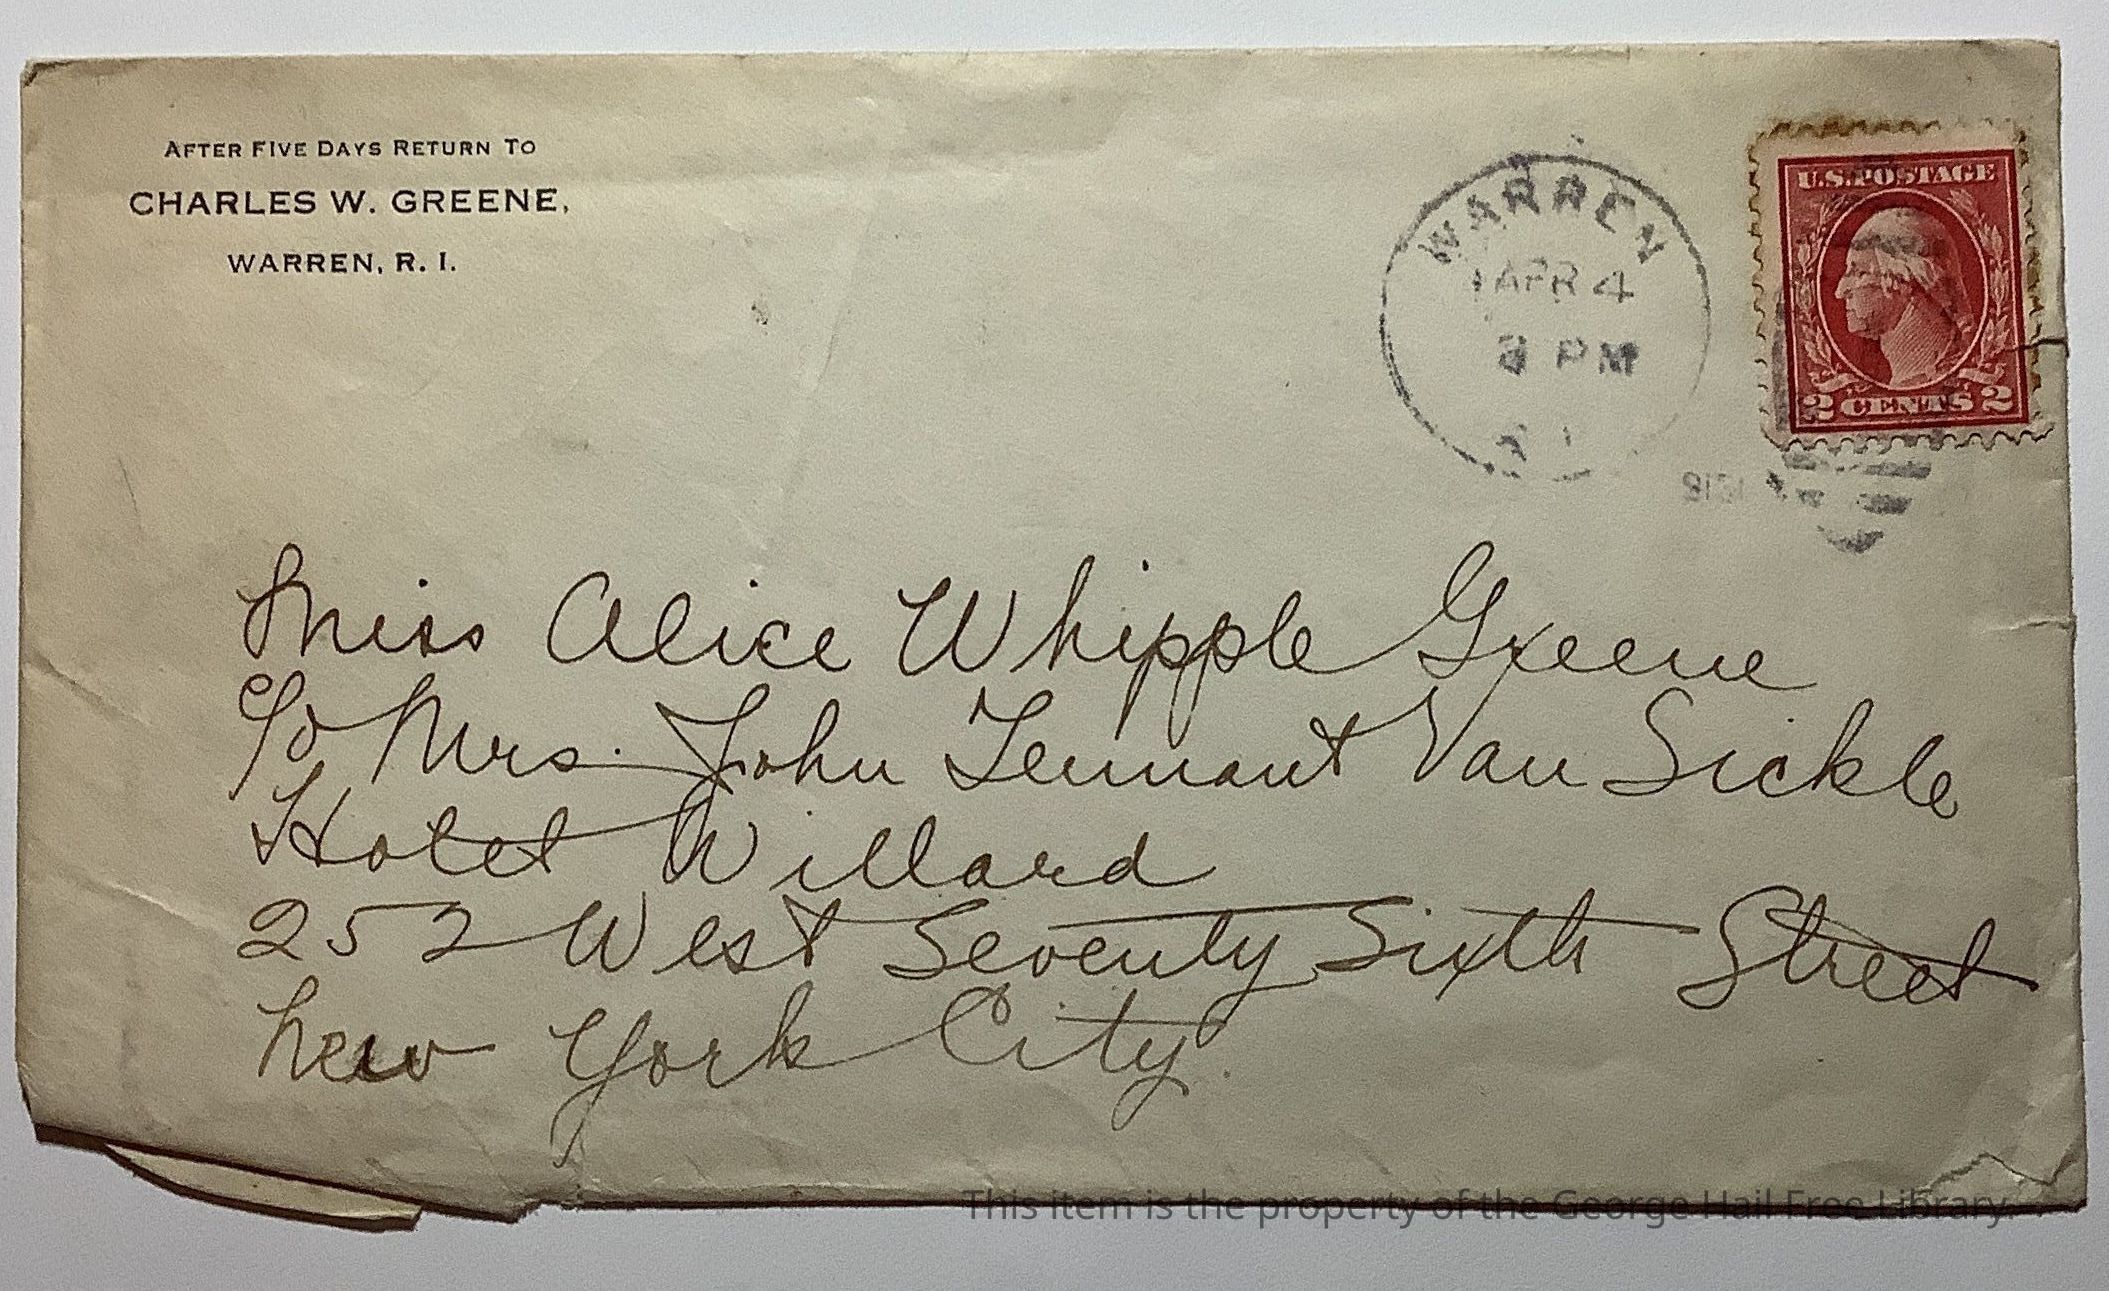 AFTER FIVE DAYS RETURN TO
CHARLES W. GREENE,
WARREN, R. I.
WARREN
APR 4
PM
R I
U.S. POSTAGE
2 CENTS 2
Miss Alice Whipple Greene
c/o Mrs. John Tennant Van Sickle
Hotel Willard
252 West Seventy Sixth Street
New York City.
This item is the property of the George Hail Free Library.